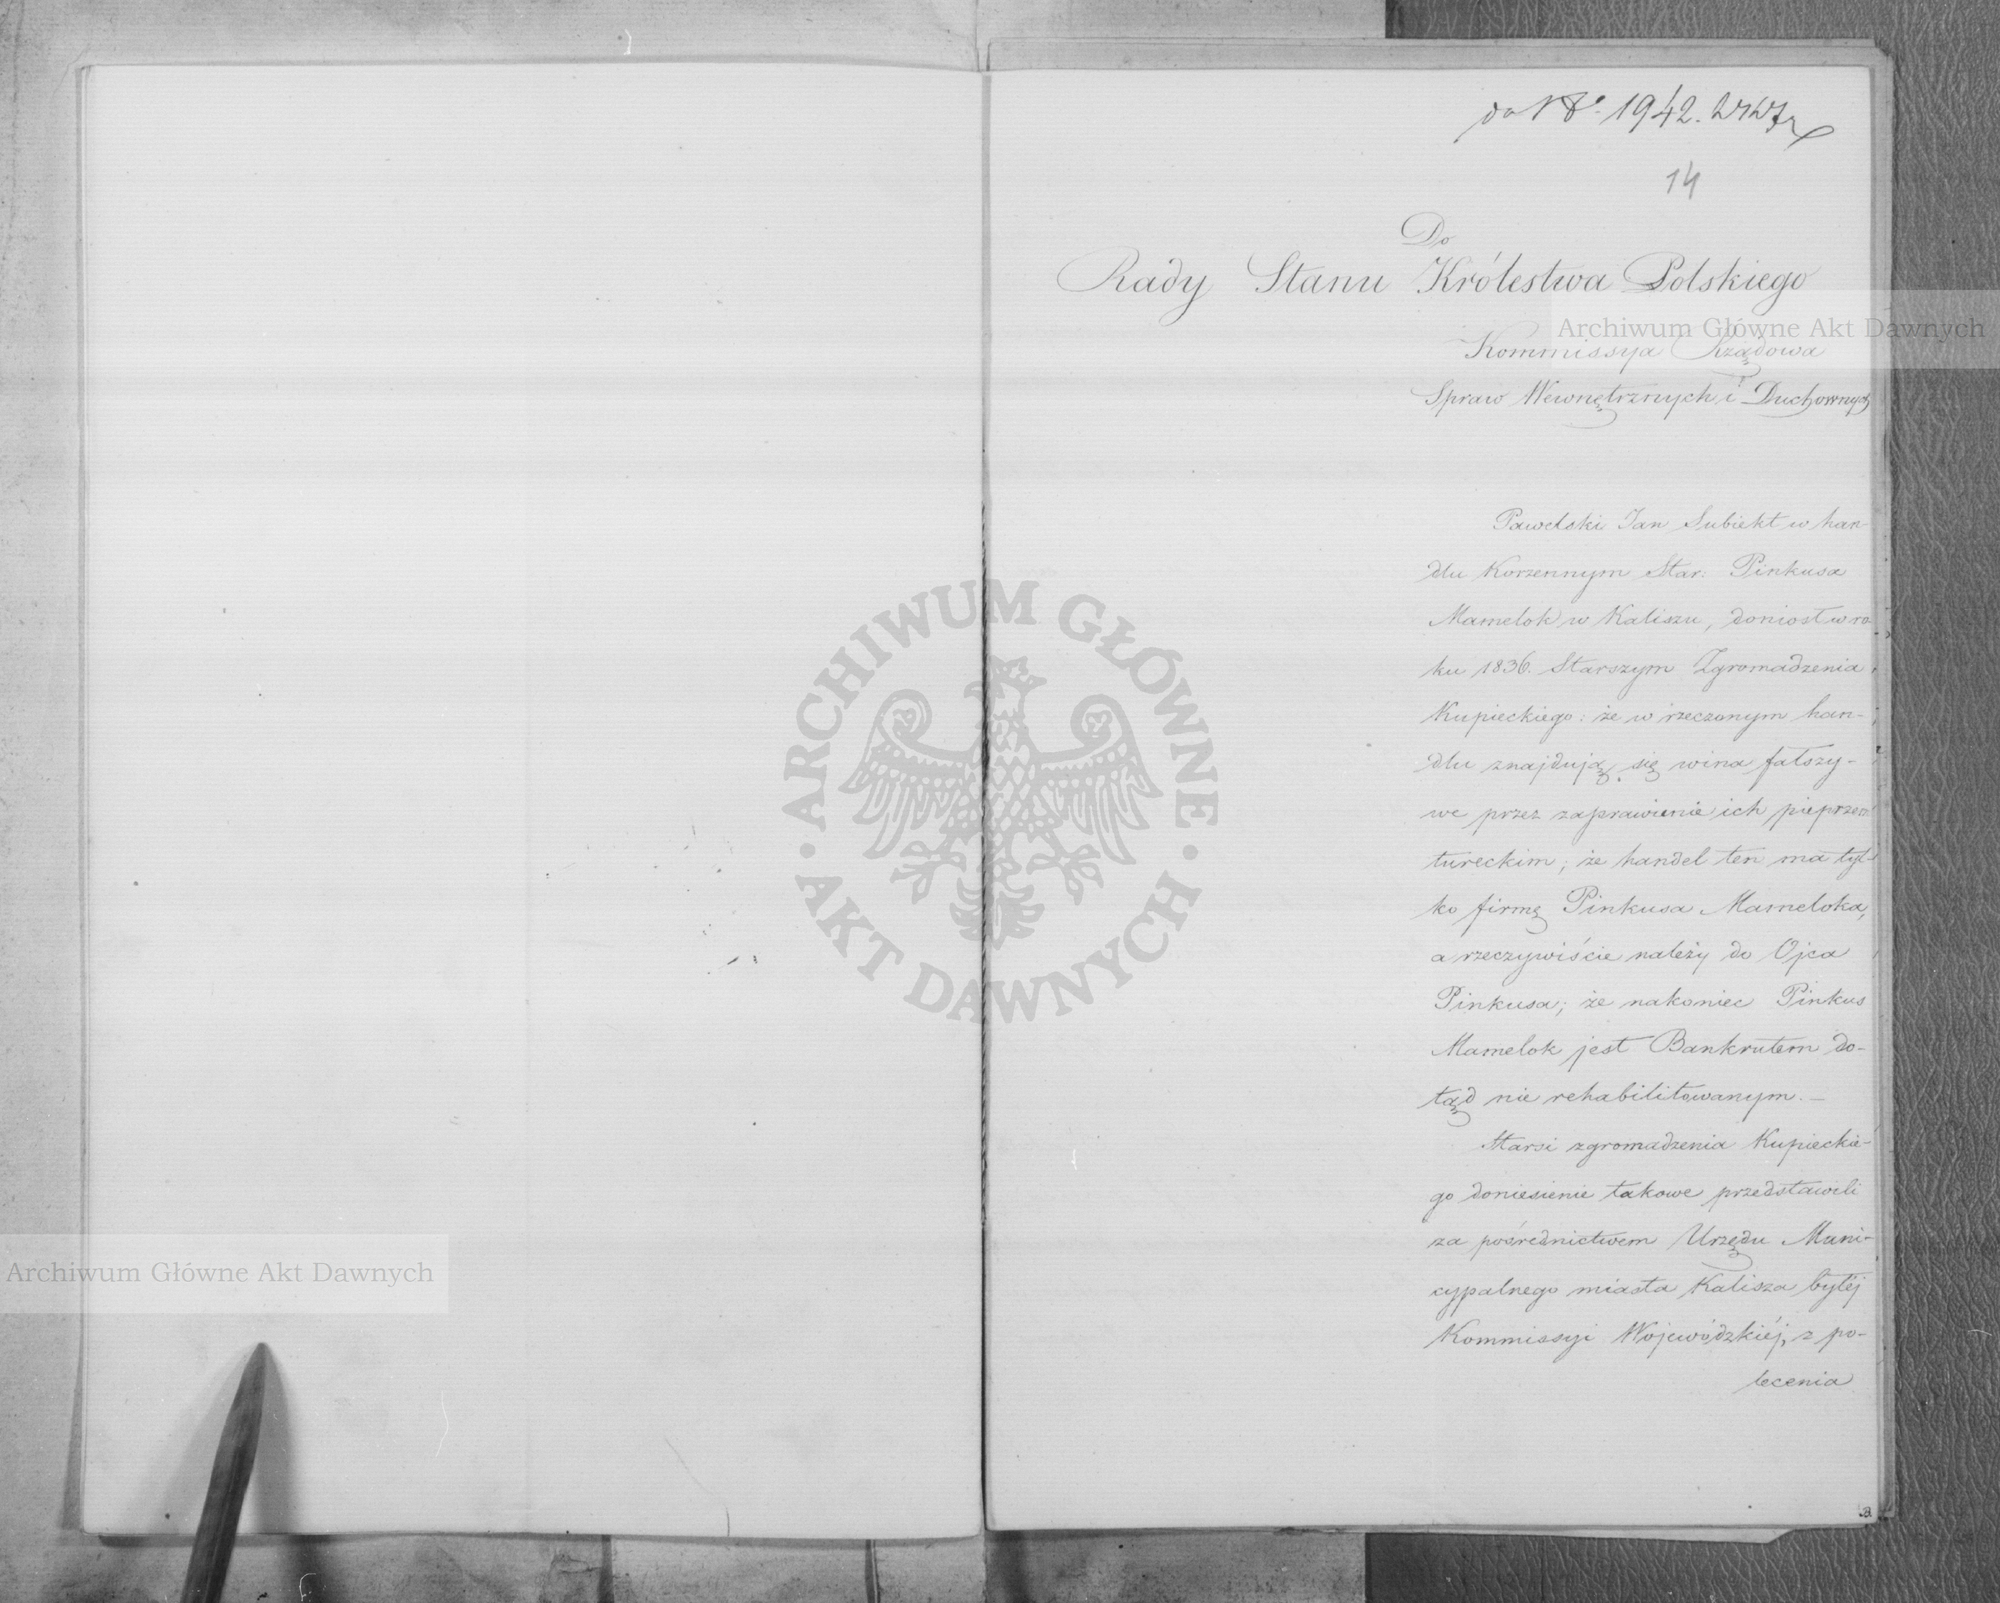 do No. 1942.
14
Do
Rady Stanu Królestwa Polskiego
Kommissya Rządowa
Spraw Wewnętrznych i Duchownych
Pawelski Jan Subiekt w han-
dlu Korzennym Star: Pinkusa
Mamelok w Kaliszu, doniosł w ro-
ku 1836. Starszym Zgromadzenia
Kupieckiego: że w rzeczonym han-
dlu znajdują się wina fałszy-
we przez zaprawienie ich pieprzem
tureckim; że handel ten ma tyl-
ko firmę Pinkusa Mameloka,
a rzeczywiście należy do Ojca
Pinkusa; że nakoniec Pinkus
Mamelok jest Bankrutem do-
tąd nie rehabilitowanym. —
Starsi zgromadzenia Kupieckie-
go doniesienie takowe przedstawili
za pośrednictwem Urzędu Muni-
cypalnego miasta Kalisza byłéj
Kommissyi Wojewódzkiéj, z po-
lecenia
Archiwum Główne Akt Dawnych
Archiwum Główne Akt Dawnych
ARCHIWUM GŁÓWNE AKT DAWNYCH